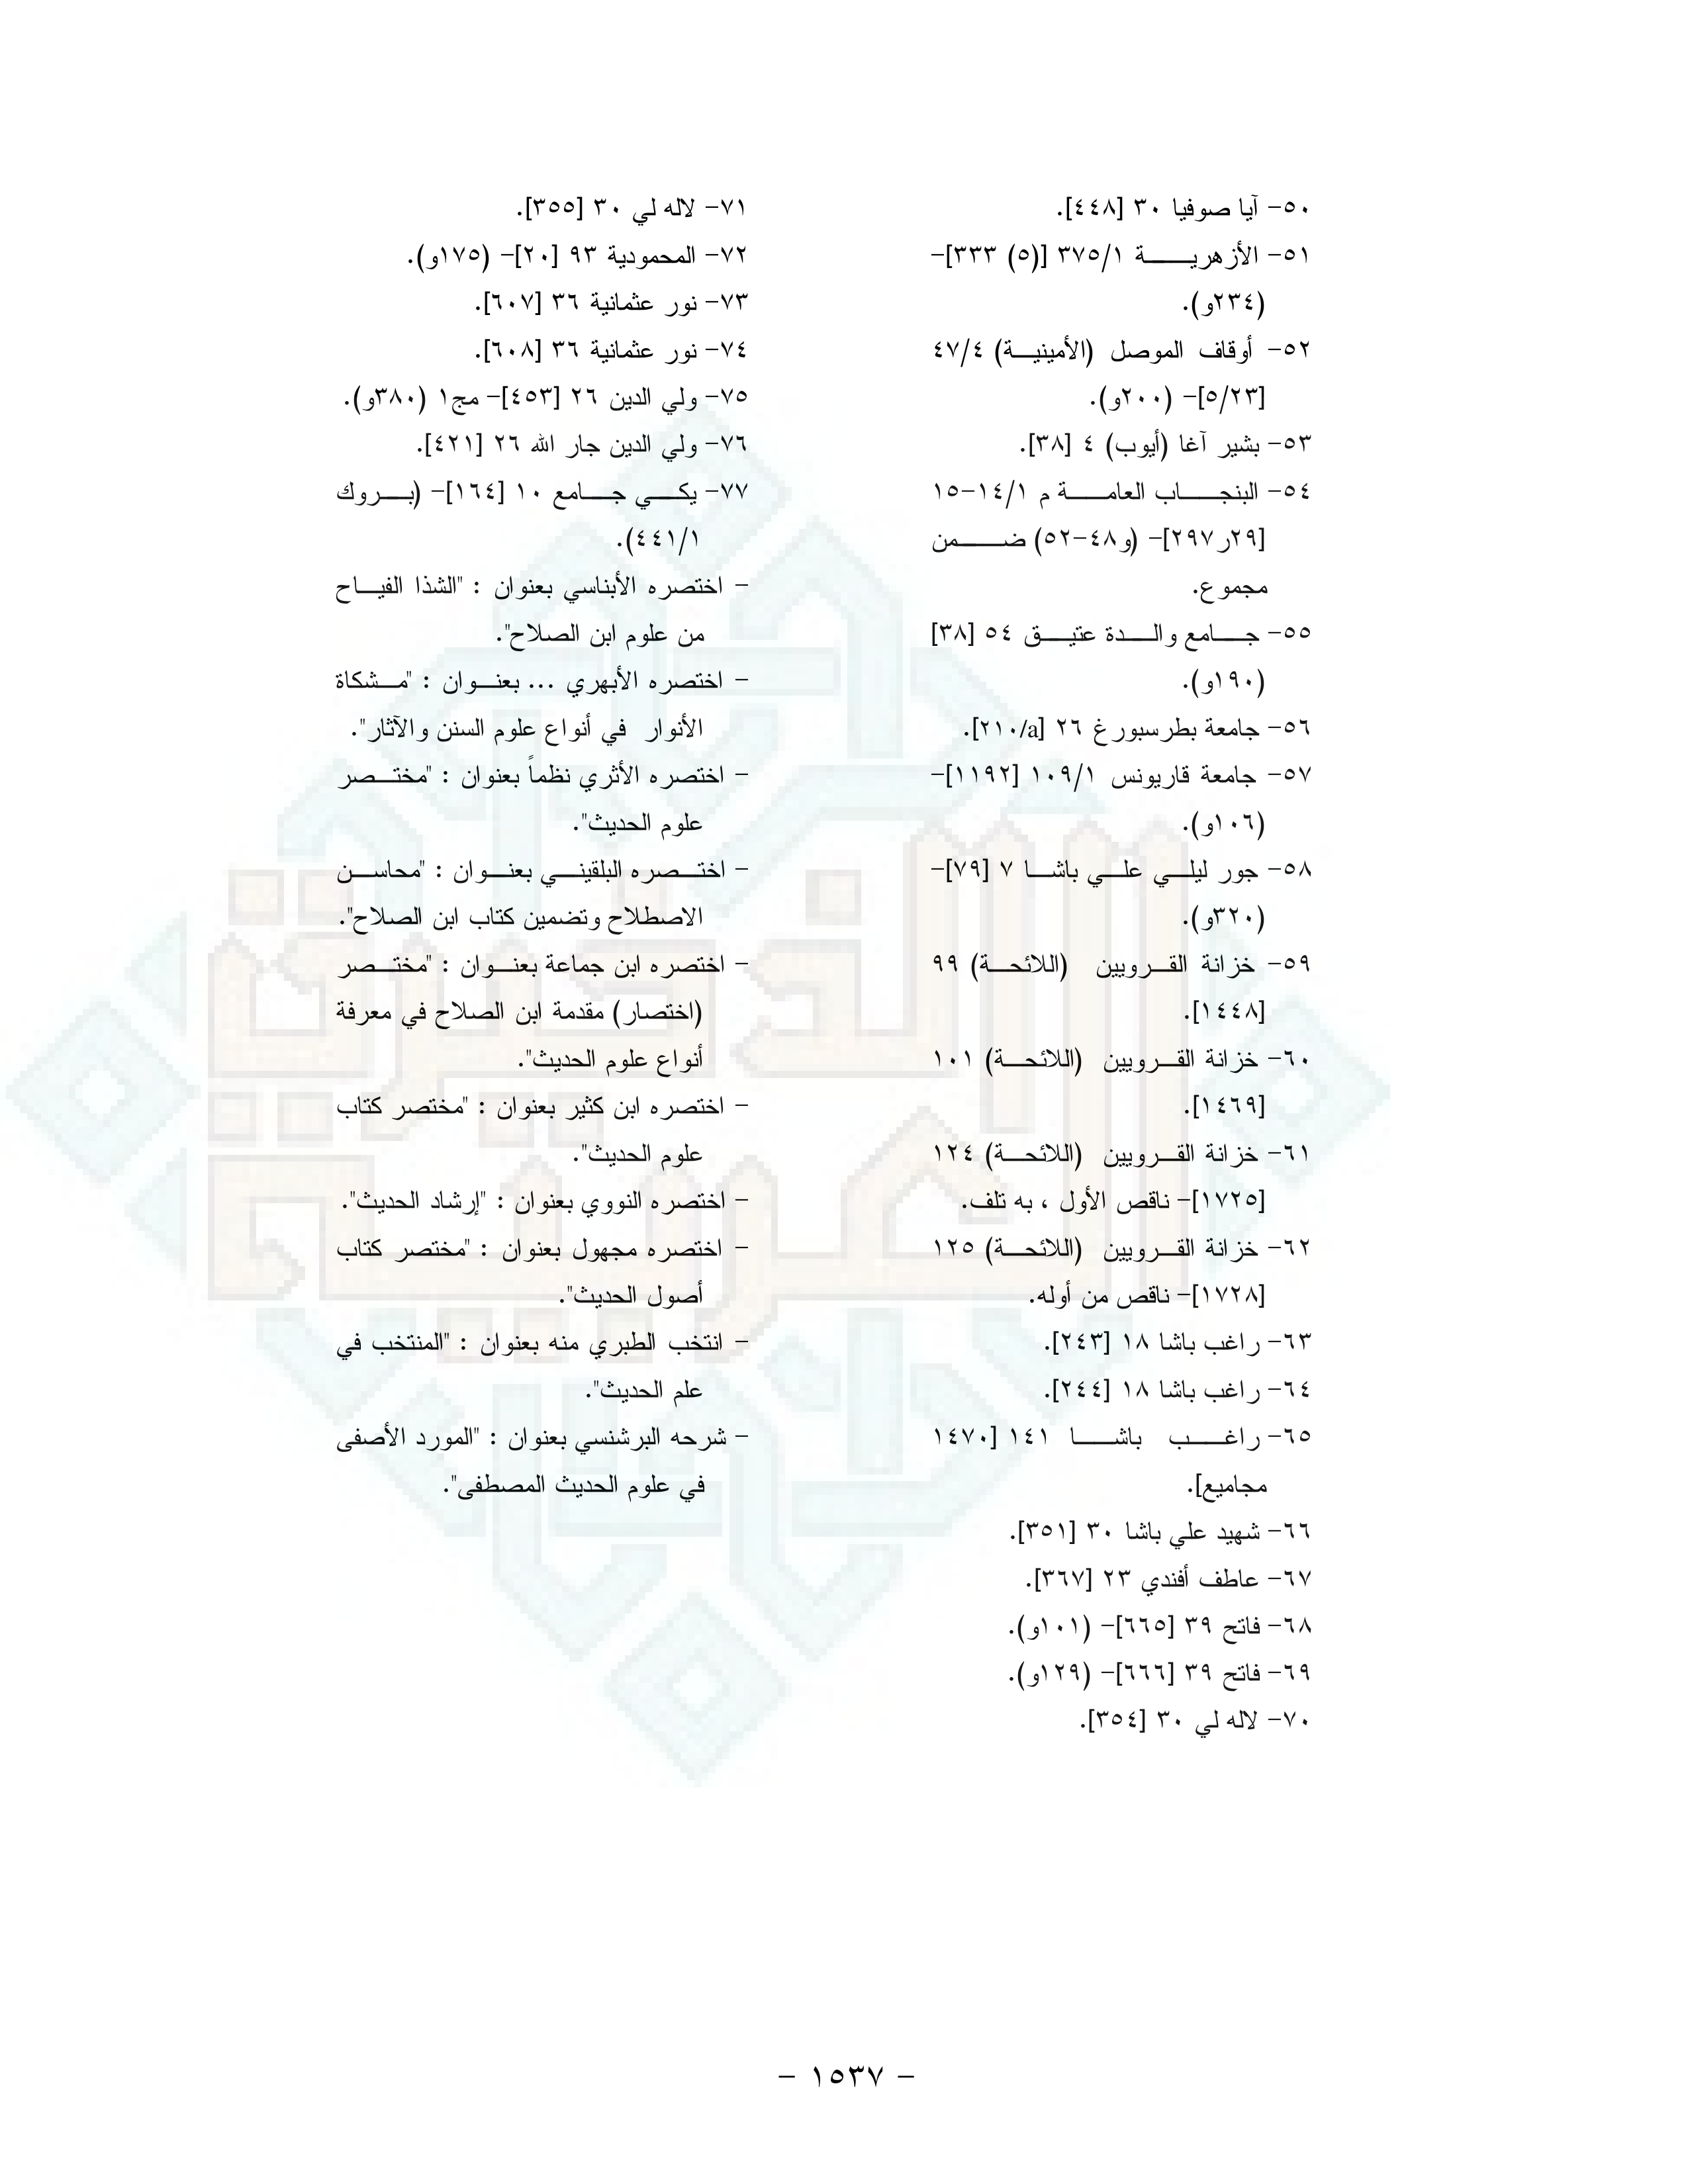 ٥٠- آيا صوفيا ٣٠ [٤٤٨].
٥١- الأزهرية ٣٧٥/١ [(٥) ٣٣٣]-
(٢٣٤و).
٥٢- أوقاف الموصل (الأمينية) ٤٧/٤
[٥/٢٣]- (٢٠٠و).
٥٣- بشير آغا (أيوب) ٤ [٣٨].
٥٤- البنجاب العامة م ١٤/١-١٥
[٢٩ر٢٩٧]- (و٤٨-٥٢) ضمن
مجموع.
٥٥- جامع والدة عتيق ٥٤ [٣٨]
(١٩٠و).
٥٦- جامعة بطرسبورغ ٢٦ [٢١٠/a].
٥٧- جامعة قاريونس ١٠٩/١ [١١٩٢]-
(١٠٦و).
٥٨- جور ليلي علي باشا ٧ [٧٩]-
(٣٢٠و).
٥٩- خزانة القرويين (اللائحة) ٩٩
[١٤٤٨].
٦٠- خزانة القرويين (اللائحة) ١٠١
[١٤٦٩].
٦١- خزانة القرويين (اللائحة) ١٢٤
[١٧٢٥]- ناقص الأول ، به تلف.
٦٢- خزانة القرويين (اللائحة) ١٢٥
[١٧٢٨]- ناقص من أوله.
٦٣- راغب باشا ١٨ [٢٤٣].
٦٤- راغب باشا ١٨ [٢٤٤].
٦٥- راغب باشا ١٤١ [١٤٧٠
مجاميع].
٦٦- شهيد علي باشا ٣٠ [٣٥١].
٦٧- عاطف أفندي ٢٣ [٣٦٧].
٦٨- فاتح ٣٩ [٦٦٥]- (١٠١و).
٦٩- فاتح ٣٩ [٦٦٦]- (١٢٩و).
٧٠- لاله لي ٣٠ [٣٥٤].
٧١- لاله لي ٣٠ [٣٥٥].
٧٢- المحمودية ٩٣ [٢٠]- (١٧٥و).
٧٣- نور عثمانية ٣٦ [٦٠٧].
٧٤- نور عثمانية ٣٦ [٦٠٨].
٧٥- ولي الدين ٢٦ [٤٥٣]- مج١ (٣٨٠و).
٧٦- ولي الدين جار الله ٢٦ [٤٢١].
٧٧- يكي جامع ١٠ [١٦٤]- (بروك
٤٤١/١).
- اختصره الأبناسي بعنوان : "الشذا الفياح
من علوم ابن الصلاح".
- اختصره الأبهري ... بعنوان : "مشكاة
الأنوار في أنواع علوم السنن والآثار".
- اختصره الأثري نظماً بعنوان : "مختصر
علوم الحديث".
- اختصره البلقيني بعنوان : "محاسن
الاصطلاح وتضمين كتاب ابن الصلاح".
- اختصره ابن جماعة بعنوان : "مختصر
(اختصار) مقدمة ابن الصلاح في معرفة
أنواع علوم الحديث".
- اختصره ابن كثير بعنوان : "مختصر كتاب
علوم الحديث".
- اختصره النووي بعنوان : "إرشاد الحديث".
- اختصره مجهول بعنوان : "مختصر كتاب
أصول الحديث".
- انتخب الطبري منه بعنوان : "المنتخب في
علم الحديث".
- شرحه البرشنسي بعنوان : "المورد الأصفى
في علوم الحديث المصطفى".
الذخيرة
العربية
- ١٥٣٧ -